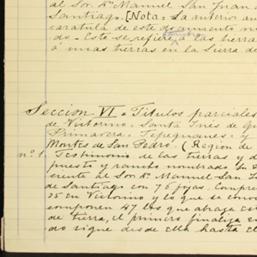 al Sor. Dn. Manuel San Juan d
Santiago. [Nota: La anterior an
caratula de este documento nu
do. Esto se refiere a las tierra
ó unas tierras en la Sierra de
Seccion VI. Titulos parciales
de Victorino. Santa Inés de
Primavera. Tepeguanes. y
Montes de San Pedro. (Region de
nº 1. Testimonio de las tierras y
puesto y rancho nombrado
cente al Sor. Dn. Manuel San
de Santiago con 76 fojas. Compre
25 en Victorino y lo que se
componen 47 los que abraza
de tierra, el primero finaliza en
do sigue desde ella hasta el